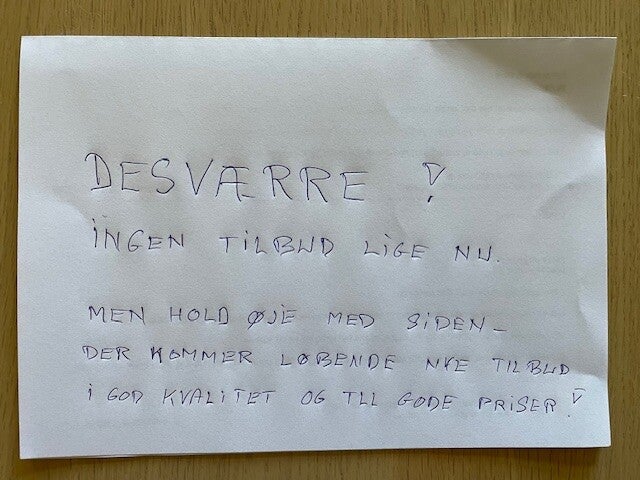 DESVÆRRE !
INGEN TILBUD LIGE NU.
MEN HOLD ØJE MED SIDEN –
DER KOMMER LØBENDE NYE TILBUD
I GOD KVALITET OG TIL GODE PRISER !